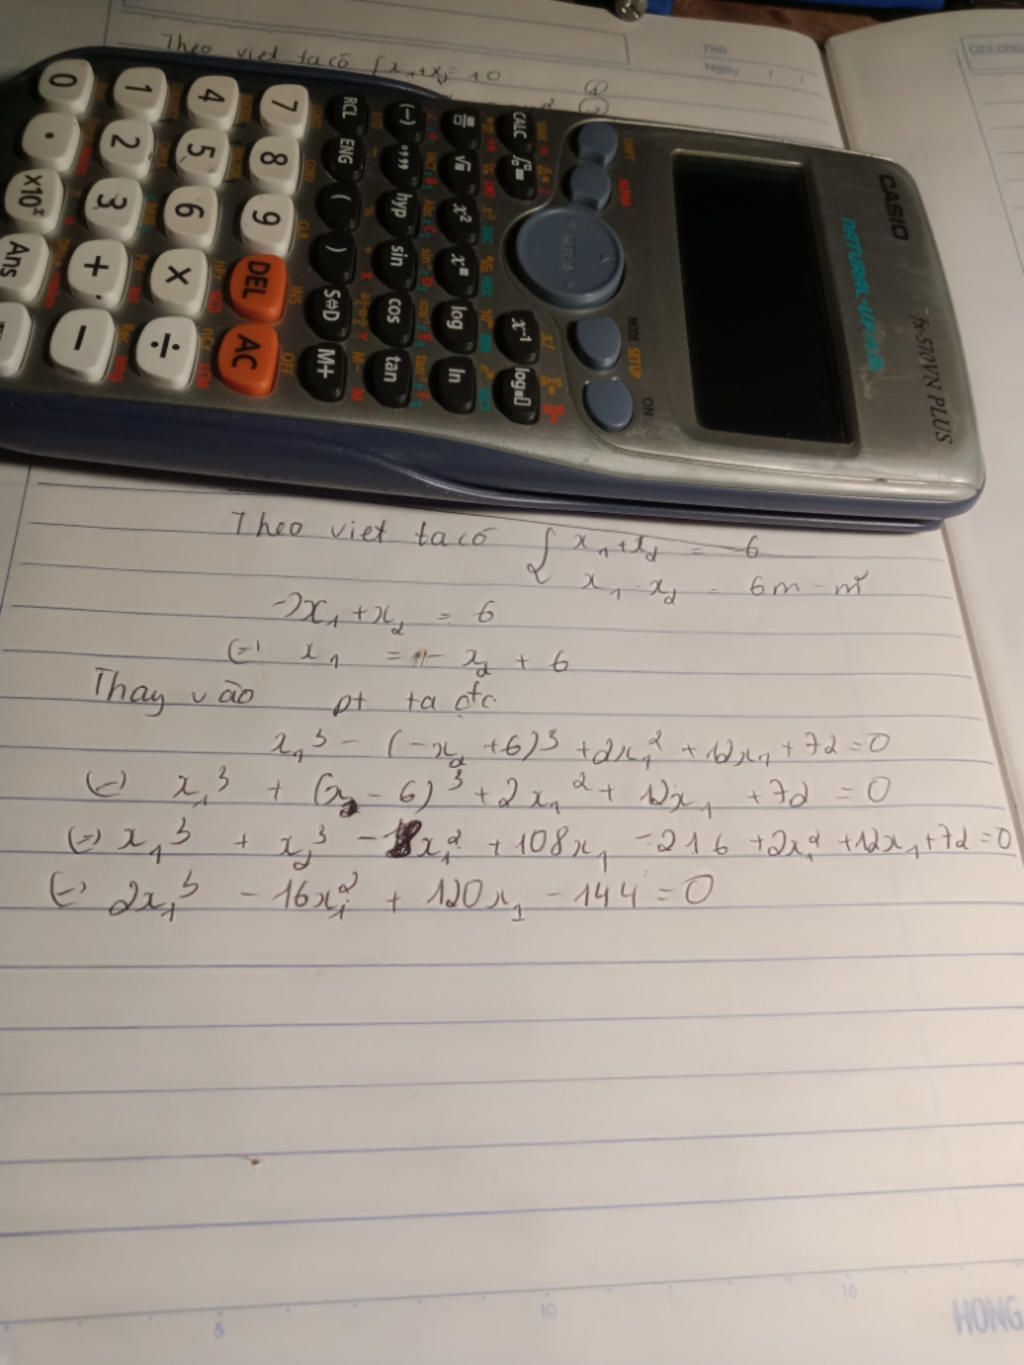 Theo viet ta có { x₁+x₂ = 10
Thứ
Ngày
Ghi chú
CASIO
NATURAL-V.P.A.M.
fx-570VN PLUS
SHIFT ALPHA REPLAY MODE SETUP ON
CALC ∫ x⁻¹ log
√ x² xⁿ log ln
(-) °,,, hyp sin cos tan
RCL ENG ( ) S⇔D M+
7 8 9 DEL AC
4 5 6 × ÷
1 2 3 + −
0 . x10ˣ Ans
Theo viet ta có { x₁+x₂ = 6
x₁.x₂ = 6m - m²
->x₁+x₂ = 6
(=) x₁ = - x₂ + 6
Thay vào pt ta đc
x₁³ - (-x₂ +6)³ +2x₁² + 12x₁ +72=0
(=) x₁³ + (x₂ - 6)³ +2x₁² + 12x₁ +72 = 0
(=) x₁³ + x₂³ - 18x₁² +108x₁ -216 +2x₁² +12x₁+72=0
(=) 2x₁³ - 16x₁² + 120x₁ - 144 = 0
5 10 15
HONG